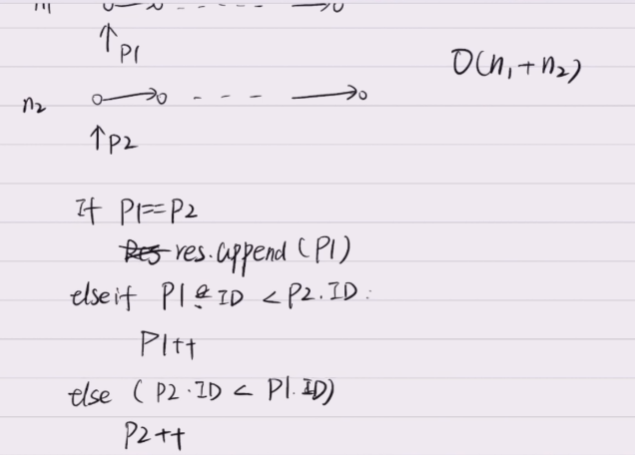 P1
O(n₁+n₂)
n₂
P2
If P1==P2
res.append(P1)
elseif P1.ID < P2.ID:
P1++
else (P2.ID < P1.ID)
P2++